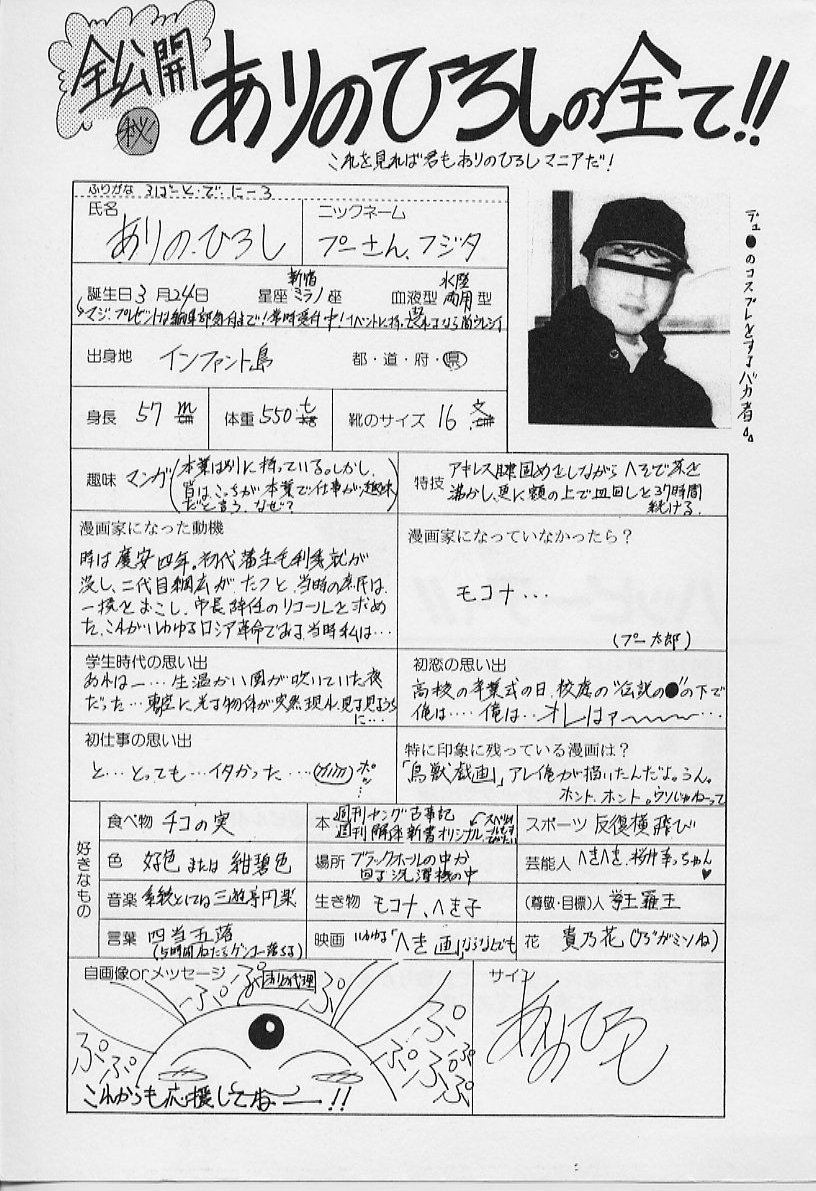 全公開
㊙
ありのひろしの全て!!
これを見れば君もありのひろしマニアだ!
ふりがな ろばーと・で・にーろ
氏名
ありの.ひろし
ニックネーム
プーさん、フジタ
誕生日3月24日
星座 新宿ミラノ座
血液型 水陸両用型
マジ.プレゼントは編集部気付まで!常時受付中!
出身地 インファント島 都・道・府・県
身長 57 m
体重 550 t
靴のサイズ 16 文
デュ●のコスプレをするバカ者
趣味 マンガ
(本業は別に持っている。しかし、
皆はこっちが本業で仕事が趣味
だと言う、なぜ?)
特技 アキレス腱固めをしながらへそで茶を
沸かし、更に額の上で皿回しを37時間
続ける.
漫画家になった動機
時は慶安四年。初代藩主毛利秀就が
没し、二代目綱広がたつと、当時の庶民は
一揆をおこし、市長辞任のリコールを求め
た、これがいわゆるロシア革命である、当時私は…
漫画家になっていなかったら?
モコナ…
(プー太郎)
学生時代の思い出
あれは一…生温かい風が吹いていた夜
だった…東空に光る物体が突然現れ、見る見るうち
に…
初恋の思い出
高校の卒業式の日、校庭の"伝説の●"の下で
俺は…. 俺は…オレはァ〜〜〜…
初仕事の思い出
と…とっても…イタかった… ポッ…
特に印象に残っている漫画は?
「鳥獣戯画」アレ俺が描いたんだよ。うん。
ホント、ホント。ウソじゃねーって
好きなもの
食べ物 チコの実
本 週刊ヤング古事記
週刊解体新書オリジナル
スポーツ 反復横飛び
色 好色または紺碧色
場所 ブラックホールの中か
回る洗濯機の中
芸能人 へきへき、桜井幸っちゃん♥
音楽 系統としては三遊亭円楽
生き物 モコナ、へき子
(尊敬・目標)人 拳王羅王
言葉 四当五落
(5時間ねたらゲンコー落ちる)
映画 いわゆる「へき画」ならなんでも
花 貴乃花
自画像orメッセージ
ありの代理
ぷぷぷ
ぷぷ
ぷぷ
ぷぷぷぷ
これからも応援してねー!!
サイン
ありのひろし